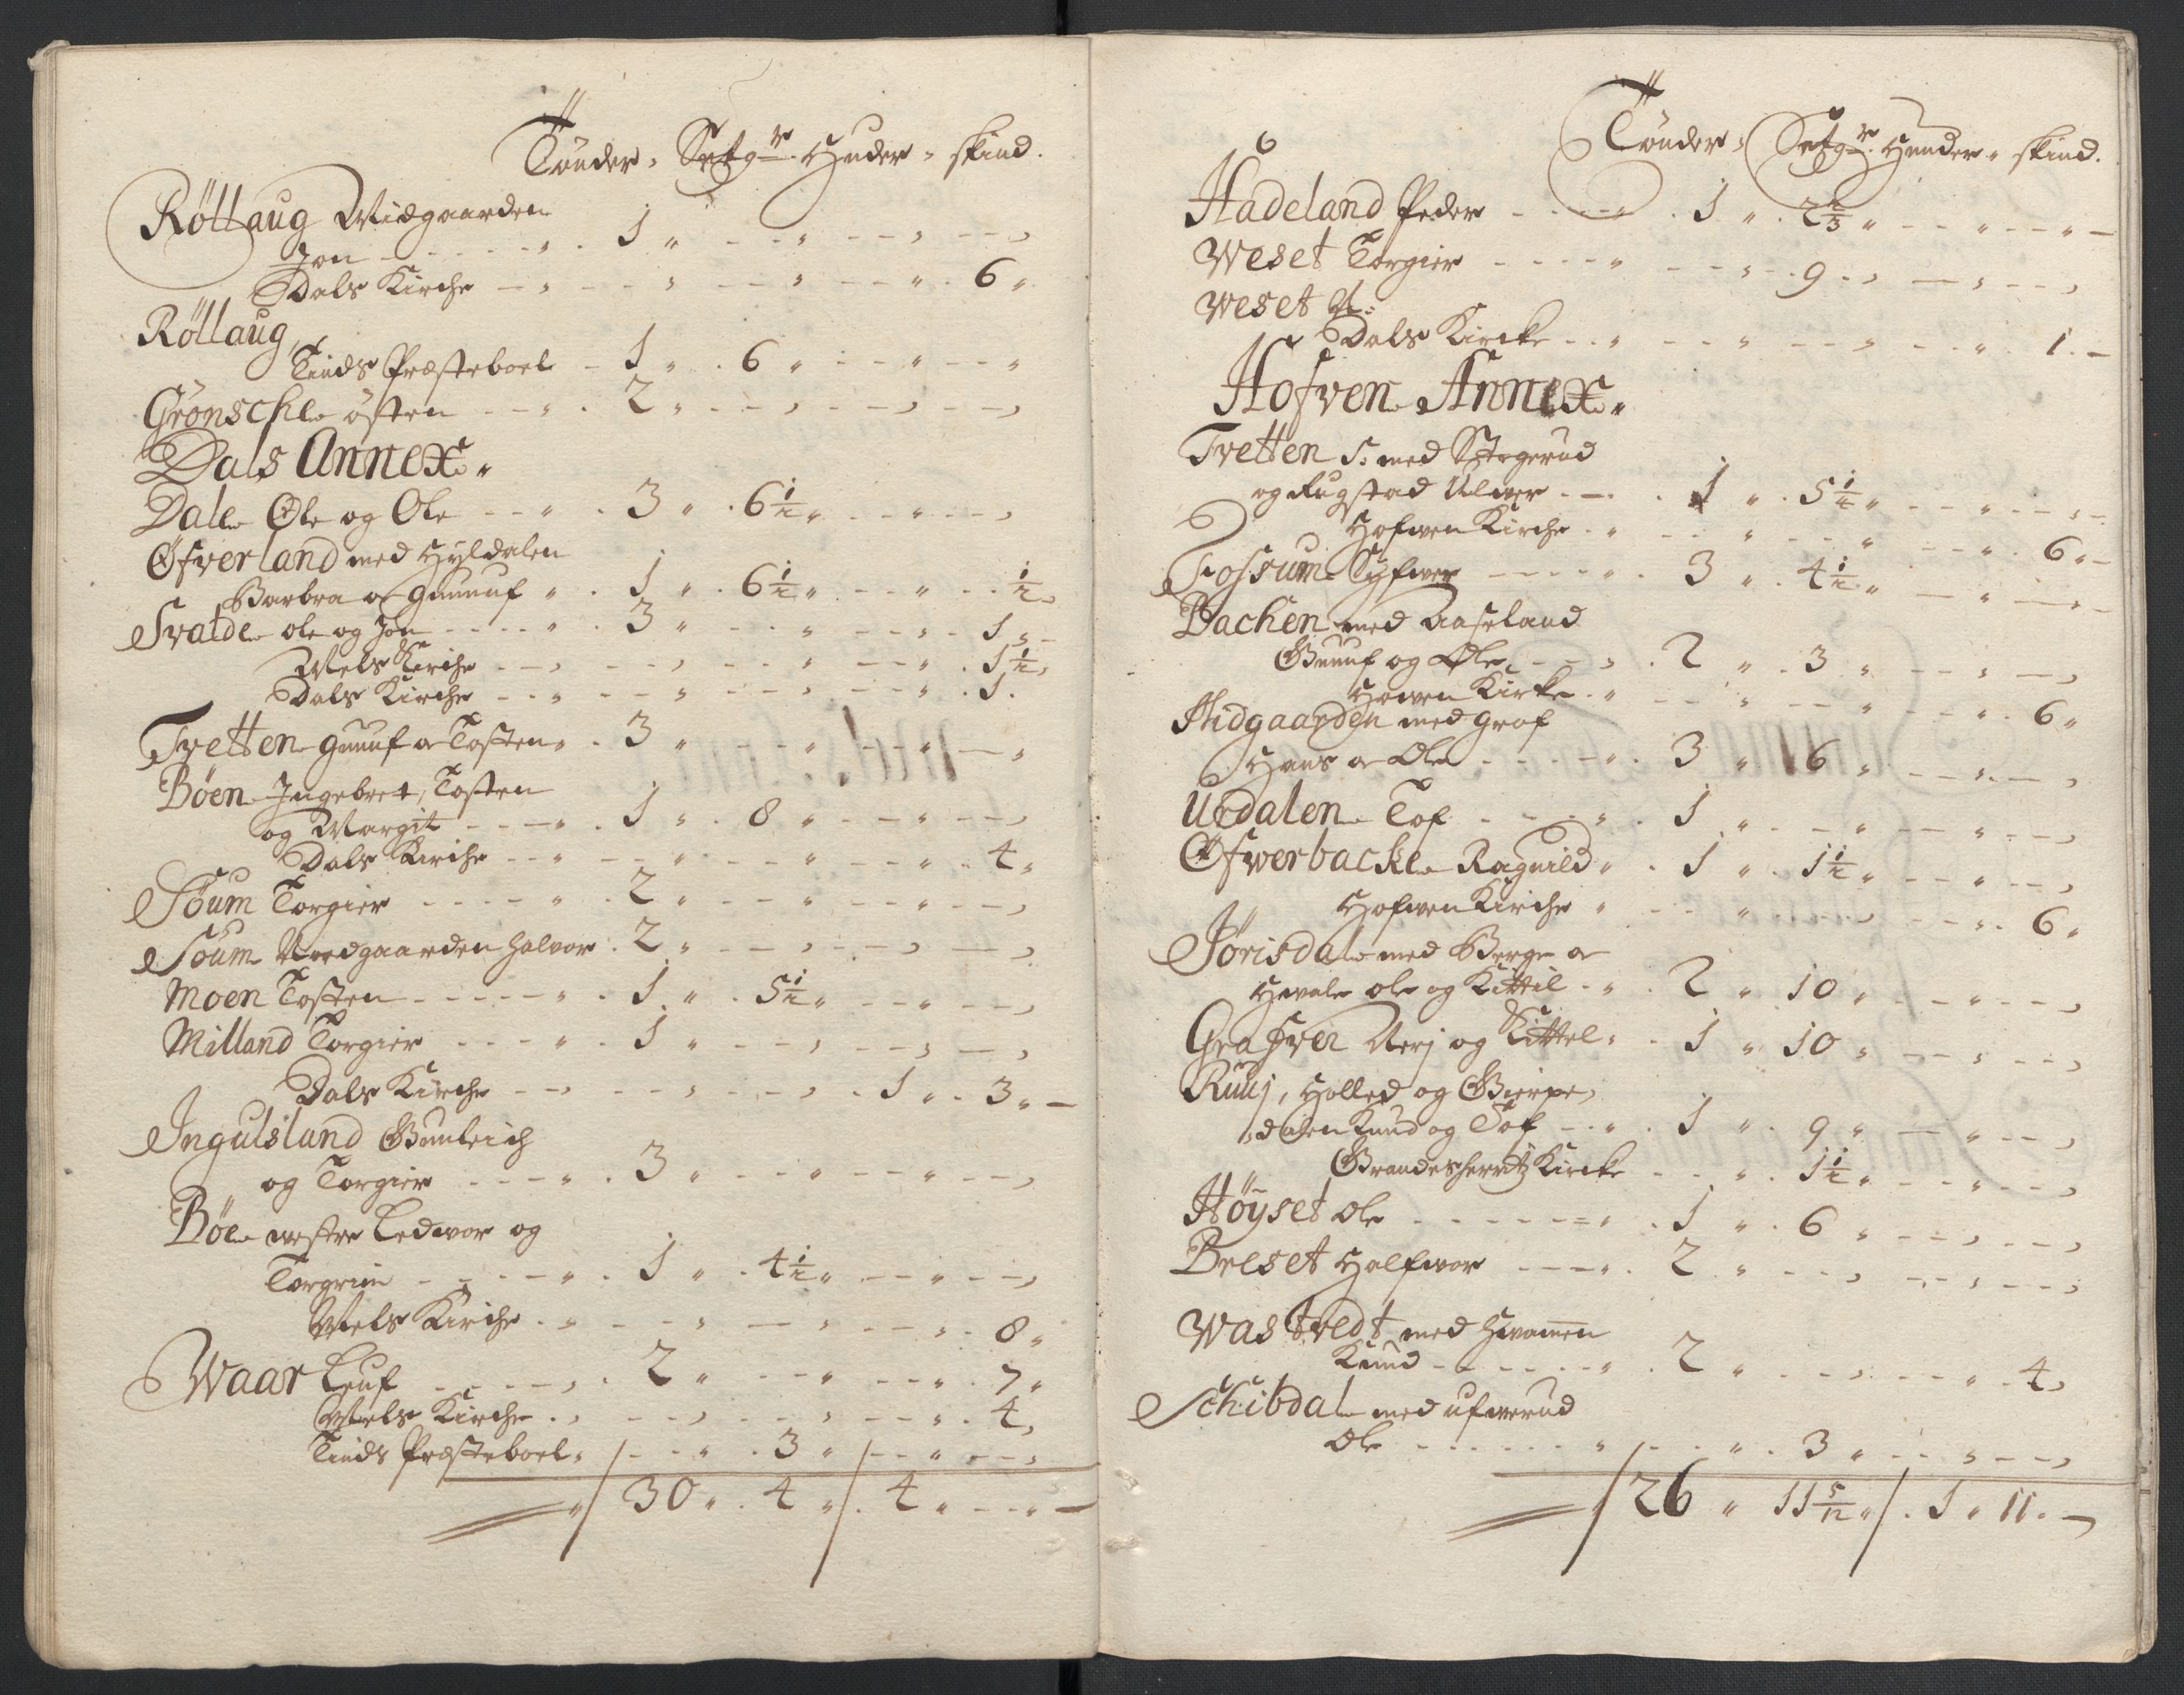 Tönder, Setgr. Huder, skind.
Röllaug Midgaarden
Jon - - - - - " . 1 " - - - " - - - , - - ,
Dals Kirche - - , - - , - - , - - " . 6 "
Röllaug,
Tinds Præsteboel - 1 " . 6 " - - - " - - "
Grönschle östen - - - " . 2 " - - - , - - - , - - ,
Dals Annex "
Dale Ole og Ole - - - " . 3 " . 6 1/2 " - - - " - - ,
Öfverland med Hyldalen
Barbra o Gunnuf " . 1 " . 6 1/2 " . - - " . - . 1/2 ,
Svalde ole og Jon - - - - " . 3 " - - - " - - - , . 1 " -
Mels Kirche - - - , - - - , - - " - - - " . 1 1/2 ,
Dals Kirche - - " - - - " - - - , - - - " . 1 .
Tvetten Gunuf o Tosten " . 3 " - - - " - - - " - - "
Böen Ingebret, Tosten
og Margit - - - - " . 1 " . 8 " - - - " - - ,
Dals Kirche - - - " - - - " - - - " - - - " . 4 "
Söum Torgier - - - - - " . 2 " - - - " - - - " - - ,
Söum Nordgaarden Halvor . 2 " - - - , - - - , - - ,
Moen Tosten - - - - - " . 1 " . 5 1/2 " - - - " - - ,
Milland Torgier - - - - " . 1 " - - - , - - - , - - ,
Dals Kirche - - - , - - - , - - - , . 1 " . 3 " -
Ingulsland Gunleich
og Torgier - - - - " . 3 " - - - " - - - " - - ,
Böe westre Ledvor og
Torgrim - - - - - " . 1 " . 4 1/2 " - - - " - - ,
Mels Kirche . " - - - " - - - , - - - , . 8 "
Waar Leuf - - - - - , . 2 " - - - " - - - " . 7 "
Mels Kirche . , - - - , - - - , - - - " . 4 ,
Tinds Præsteboel " - - - " . 3 " - - - " - - ,
" 30 " . 4 " . 4 " - - " -
Tönder, Setgr. Hunder " skind.
Hadeland Peder - - - - - " . 1 " . 2 2/3 " - - - " - - " -
Weset Torgier - - - - - " - - - , . 9 . , - - , - - ,
Weset A:
Dals Kircke - - " - - - " - - - , - - - " . 1 . -
Hofven Annex "
Tvetten S: med Stegerud
og Rugstad Ulver . - . . 1 " . 5 1/2 " - - - " - - , -
Hofven Kirche . " - - - " - - - " - - - " . 6 " -
Fossum Syfver - - - - - " . 3 " . 4 1/2 " - - " - - " -
Bachen med Aaseland
Gunuf og Ole - - - , . 2 " . 3 " - - - , - - ,
Hoven Kirke . " - - - , - - - " - - - " . 6 "
Midgaarden med Graf
Hans o Ole - - - - - " . 3 " 6 " - - - " . - - ,
Urdalen Tof - - - - " . 1 " - - - " - - - " - - ,
Öfwerbackle Ragnild " . 1 " . 1 1/2 " - - - " - - ,
Hofven Kirche " - - - " - - - , - - - " . 6 "
Jörisdal med Berge o
Hvale ole og Kittil . " . 2 " 10 " - - - " - - ,
Grafven Aerj og Kittel " . 1 " 10 " - - - , - - ,
Ruuj, Holled og Gierpe,
dalen Knud og Tof - - " . 1 " . 9 " - - " - - ,
Grandesherritz Kircke - - - " . 1 1/2 " - - - " - - ,
Höyset Ole - - - - - - = " . 1 " . 6 " - - - , - - ,
Breset Halfvor - - - - " . 2 " - - - , - - - , - - ,
Wastvedt med Hvamen
Knud - - - - - - " . 2 " - - - , . - - " . 4 ,
Schibdal med Ufverud
Ole - - - - - - " - - . " . 3 " - - - , - - ,
26 " 11 5/12 " . 1 " 11 . -